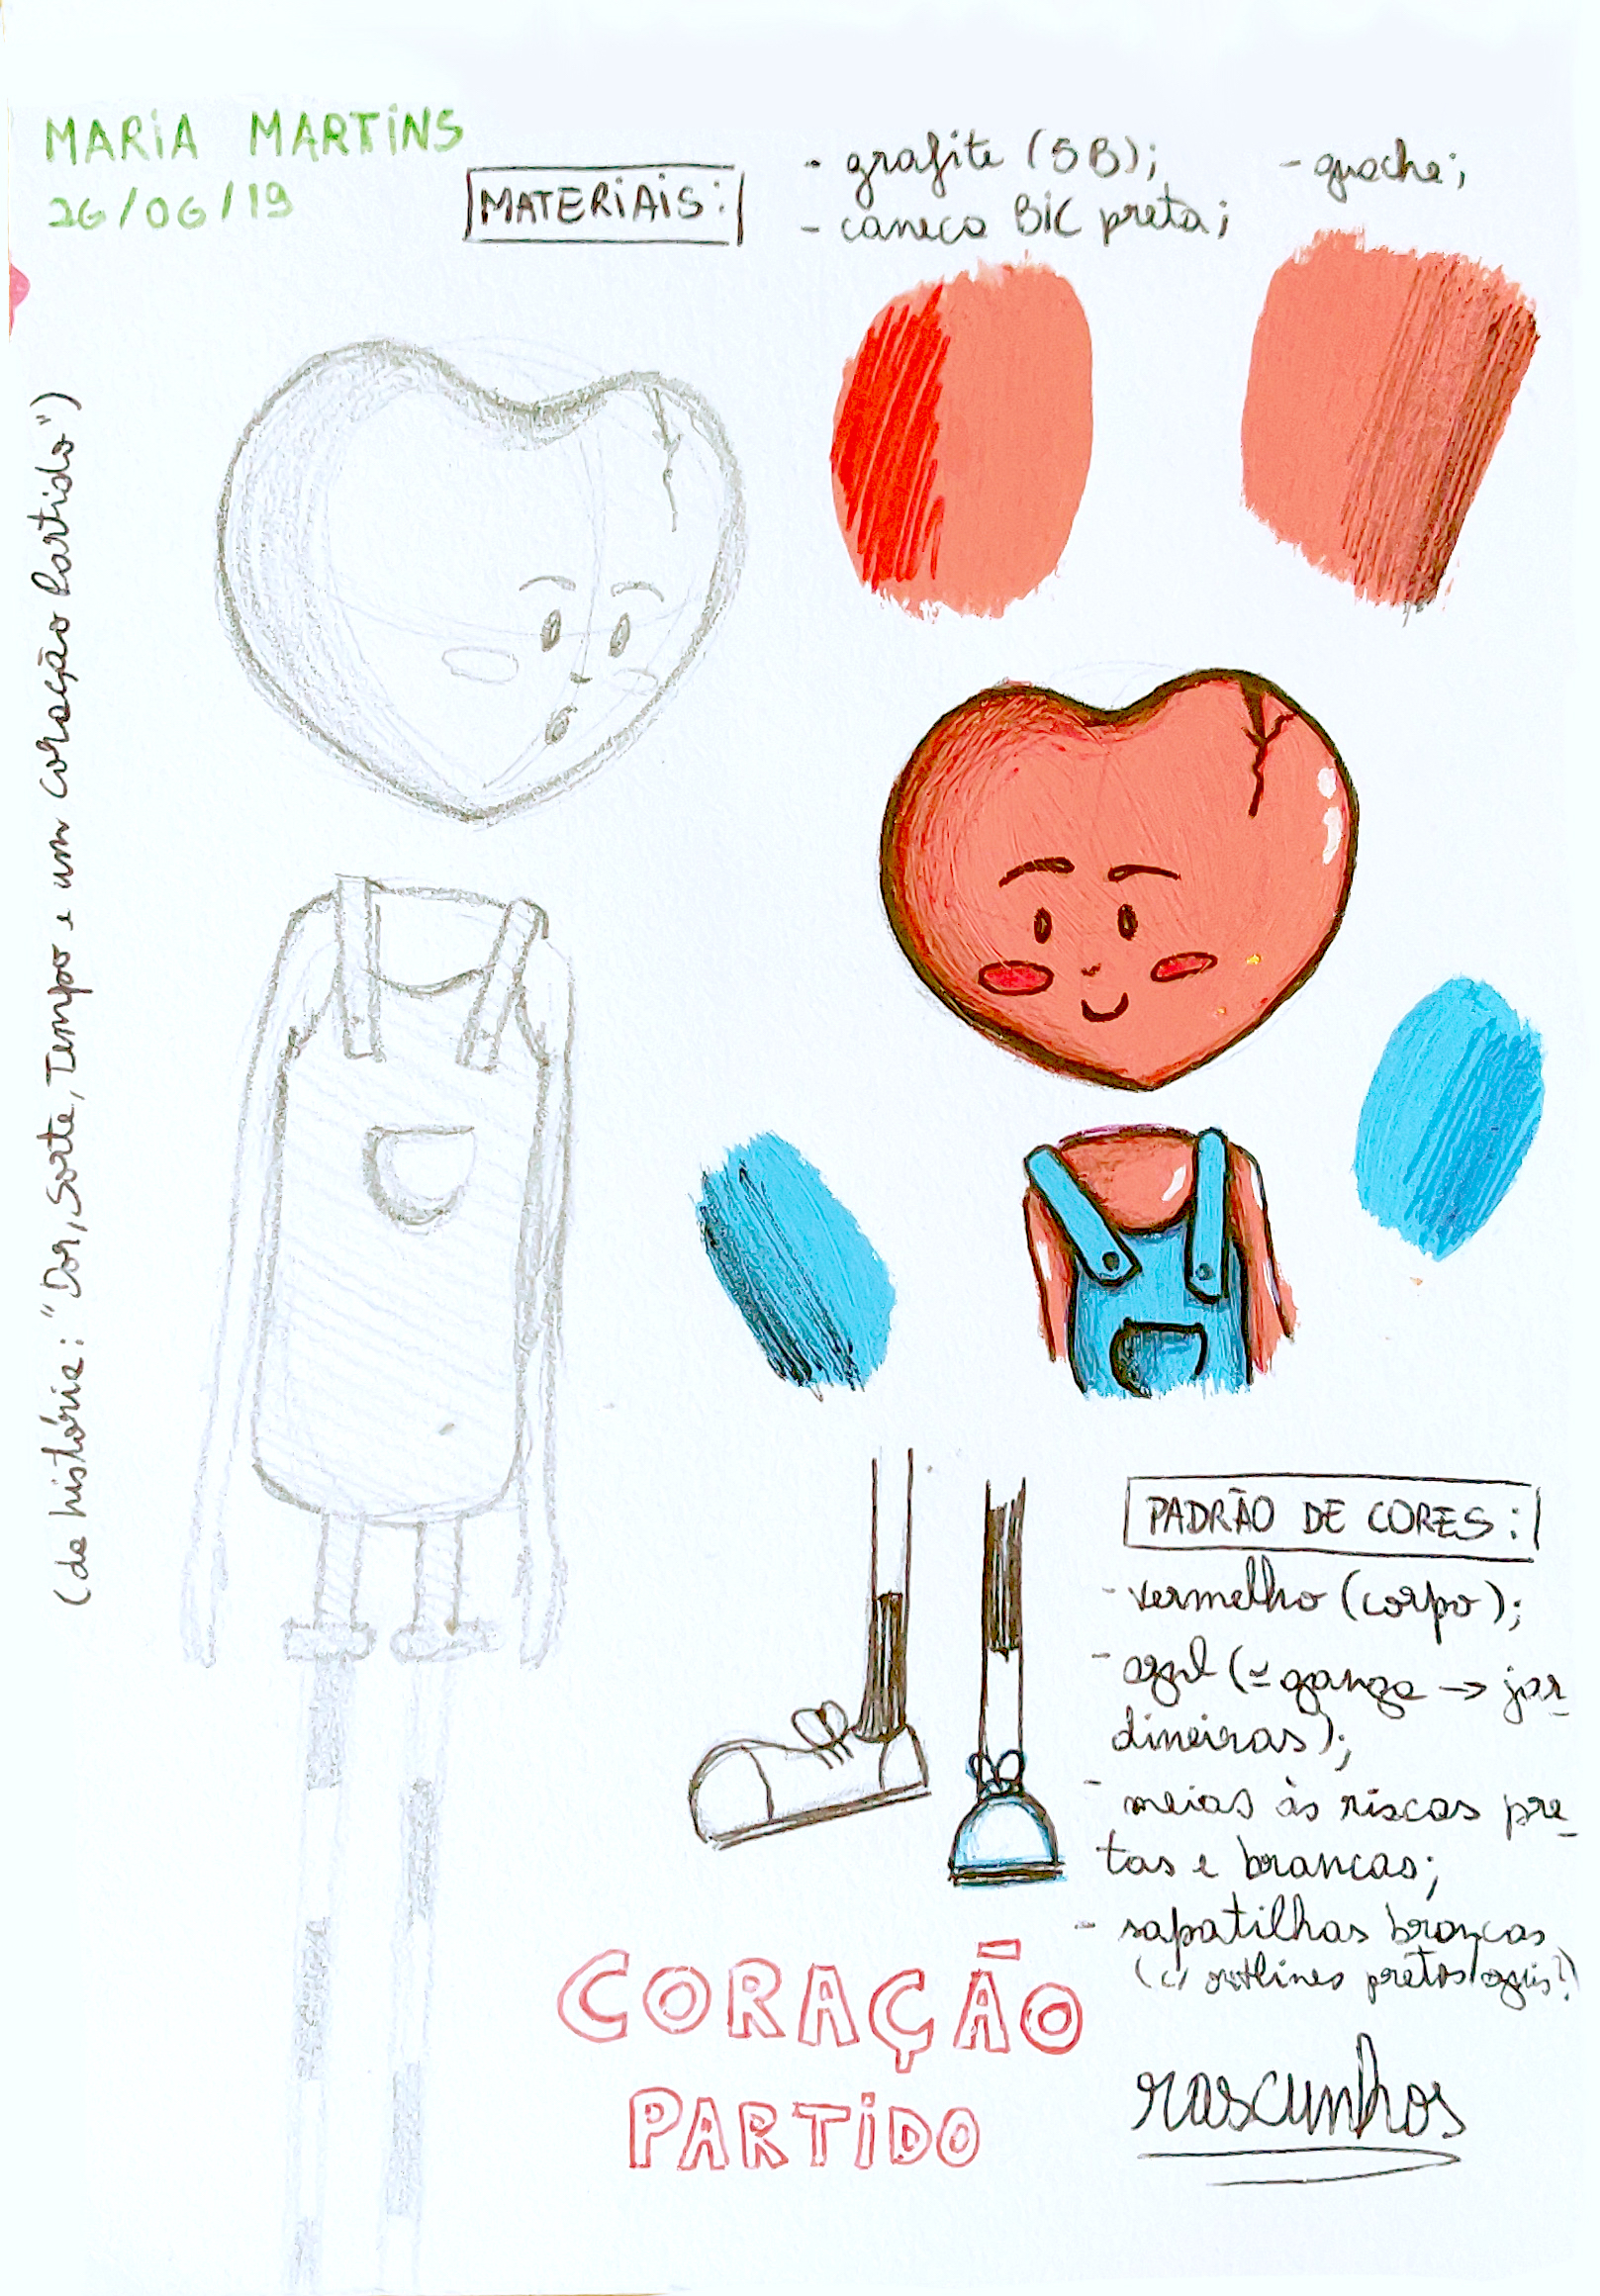 MARIA MARTINS
26/06/19
MATERIAIS:
- grafite (5B);
- caneca BIC preta;
- guache;
(de história: "Dor, Sorte, Tempo e um coração Partido")
PADRÃO DE CORES:
- vermelho (corpo);
- azul (≃ ganga → jar-
dineiras);
- meias às riscas pre-
tas e brancas;
- sapatilhas brancas
(c/ outlines pretos/azuis?)
CORAÇÃO
PARTIDO
rascunhos